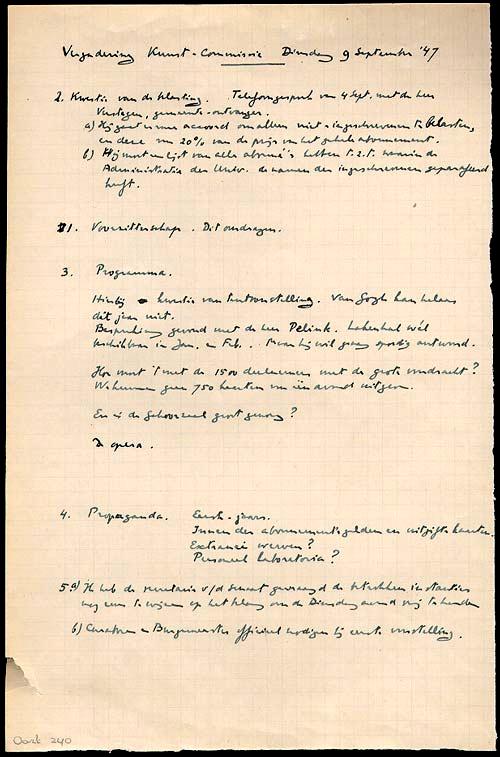 Vergadering Kunst-Commissie Dinsdag 9 September '47
2. Kwestie van de belasting. Telefoongesprek van 4 Sept. met de heer
Verstegen, gemeente-ontvanger.
a) Hij gaat ermee accoord om alleen niet-ingeschrevenen te belasten,
en deze van 20% van de prijs van het gehele abonnement.
b) Hij moet een lijst van alle abonné's hebben t.z.t. waarin de
Administratie der Univ. de namen der ingeschrevenen geparafeerd
heeft.
1. Voorzitterschap. Dit omdragen.
3. Programma.
Hierbij kwestie van tentoonstelling. Van Gogh kan helaas
dit jaar niet.
Bespreking gevoerd met de heer Pelink. Lakenhal wèl
beschikbaar in Jan. en Feb. Maar hij wil graag spoedig antwoord.
Hoe moet 't met de 1500 deelnemers met de grote voordracht?
We kunnen geen 750 kaarten voor één avond uitgeven.
En is de Gehoorzaal groot genoeg?
De opera.
4. Propaganda. Eerste-jaars.
Innen der abonnementsgelden en uitgifte kaarten.
Extranei werven?
Personeel laboratoria?
5 a) Ik heb de secretaris v/d Senaat gevraagd de betrokken instanties
nog eens te wijzen op het belang om de Dinsdagavond vrij te houden
b) Curatoren en Burgemeester officieel nodigen bij eerste voorstelling.
Oost 240